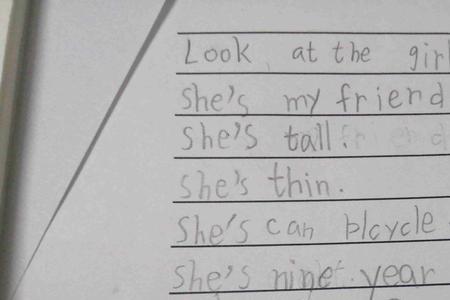 Look at the girl
She's my friend
She's tall.
She's thin.
She's can blcycle
She's nine year